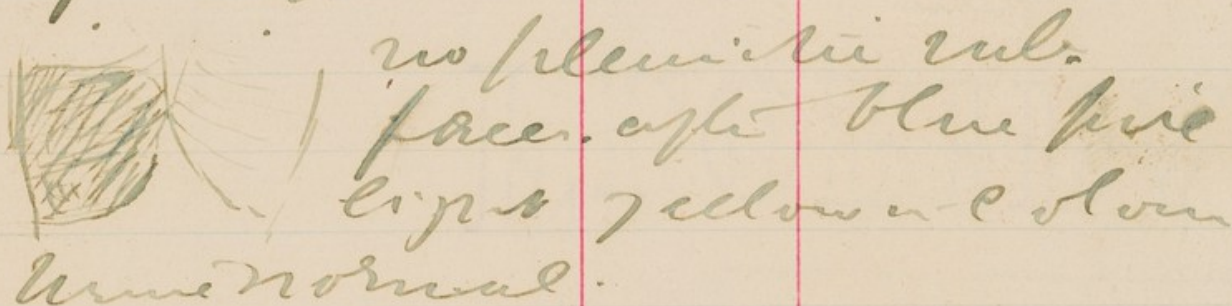 no pleuritic rub.
faeces after blue pill
light yellow in colour
Urine normal.